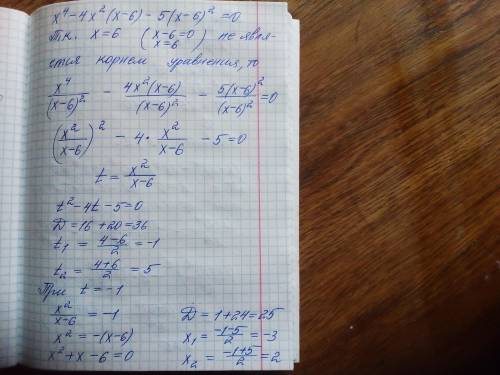 x⁴ - 4x²(x-6) - 5(x-6)² = 0
Т.к. x=6 (x-6=0 x=6) не явля-
ется корнем уравнения, то
x⁴/(x-6)² - 4x²(x-6)/(x-6)² - 5(x-6)²/(x-6)² = 0
(x²/x-6)² - 4 · x²/x-6 - 5 = 0
t = x²/x-6
t² - 4t - 5 = 0
D = 16 + 20 = 36
t₁ = 4-6/2 = -1
t₂ = 4+6/2 = 5
При t = -1
x²/x-6 = -1
x² = -(x-6)
x² + x - 6 = 0
D = 1 + 24 = 25
x₁ = -1-5/2 = -3
x₂ = -1+5/2 = 2